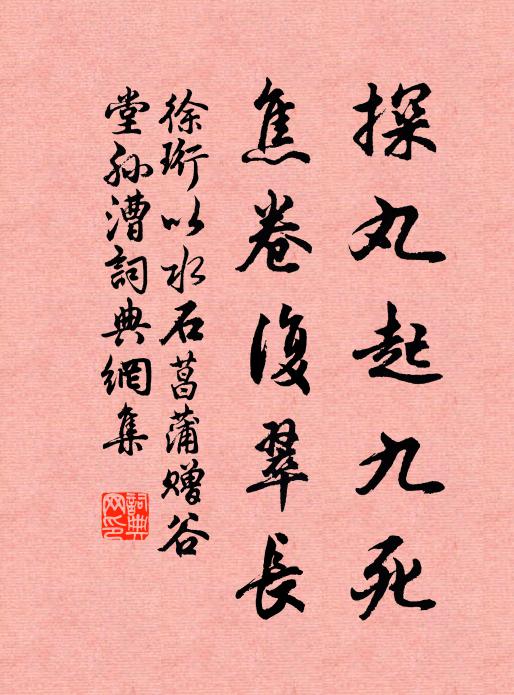 探丸起九死
焦卷復翠長
徐珩以水石菖蒲贈谷
堂孙漕詞典網集
詞典
网印